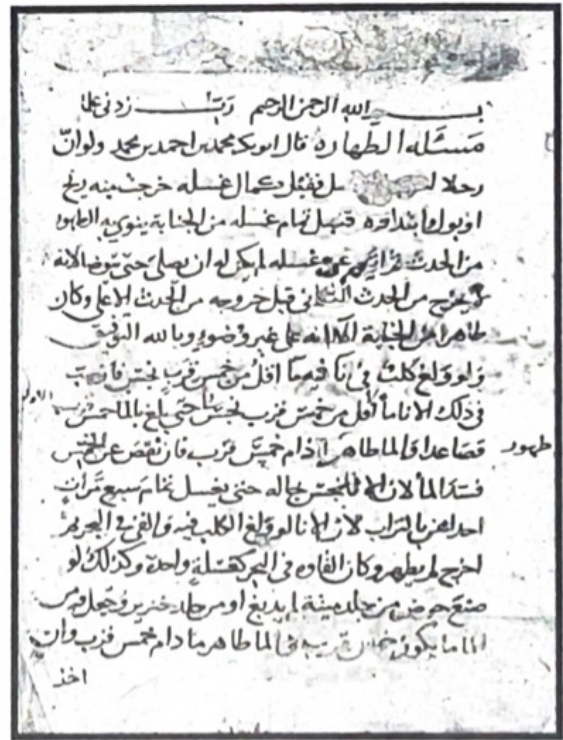 بسم الله الرحمن الرحيم رب زدني علما
مسئله الطهارة قال ابو بكر محمد بن احمد بن محمد ولو ان
رجلا فقبل كمال غسله خرجت منه ريح
او بول وابتداوه قبل تمام غسله من الجنابة ينوي به الطهور
من الحدث غسله لم يكن له ان يصلي حتى يتوضا لانه
لا يخرج من الحدث الثاني قبل خروجه من الحدث الاعلى وكان
طاهرا من الجنابة الا انه على غير وضوء وبالله التوفيق
ولو ولغ كلب في انا فيه ما اقل من خمس قرب نجس فان صب
في ذلك الانا ما اقل من خمس قرب نجس حتى بلغ بالما خمس قرب
الاول
فصاعدا فالما طاهر ما دام خمس قرب فان نقص عن الخمس
طهور
فسد الما لان الانا نجس بحاله حتى يغسل تمام سبع مرات
احداهن بالتراب لان الانا لو ولغ الكلب فيه والقي في البحر ثم
اخرج لم يطهر وكان القاوه في البحر كغسلة واحدة وكذلك لو
صنع حوض من جلد ميتة لم يدبغ او من جلد خنزير وجعل فيه من
الما ما يكون خمس قرب فالما طاهر ما دام خمس قرب وان
اخذ